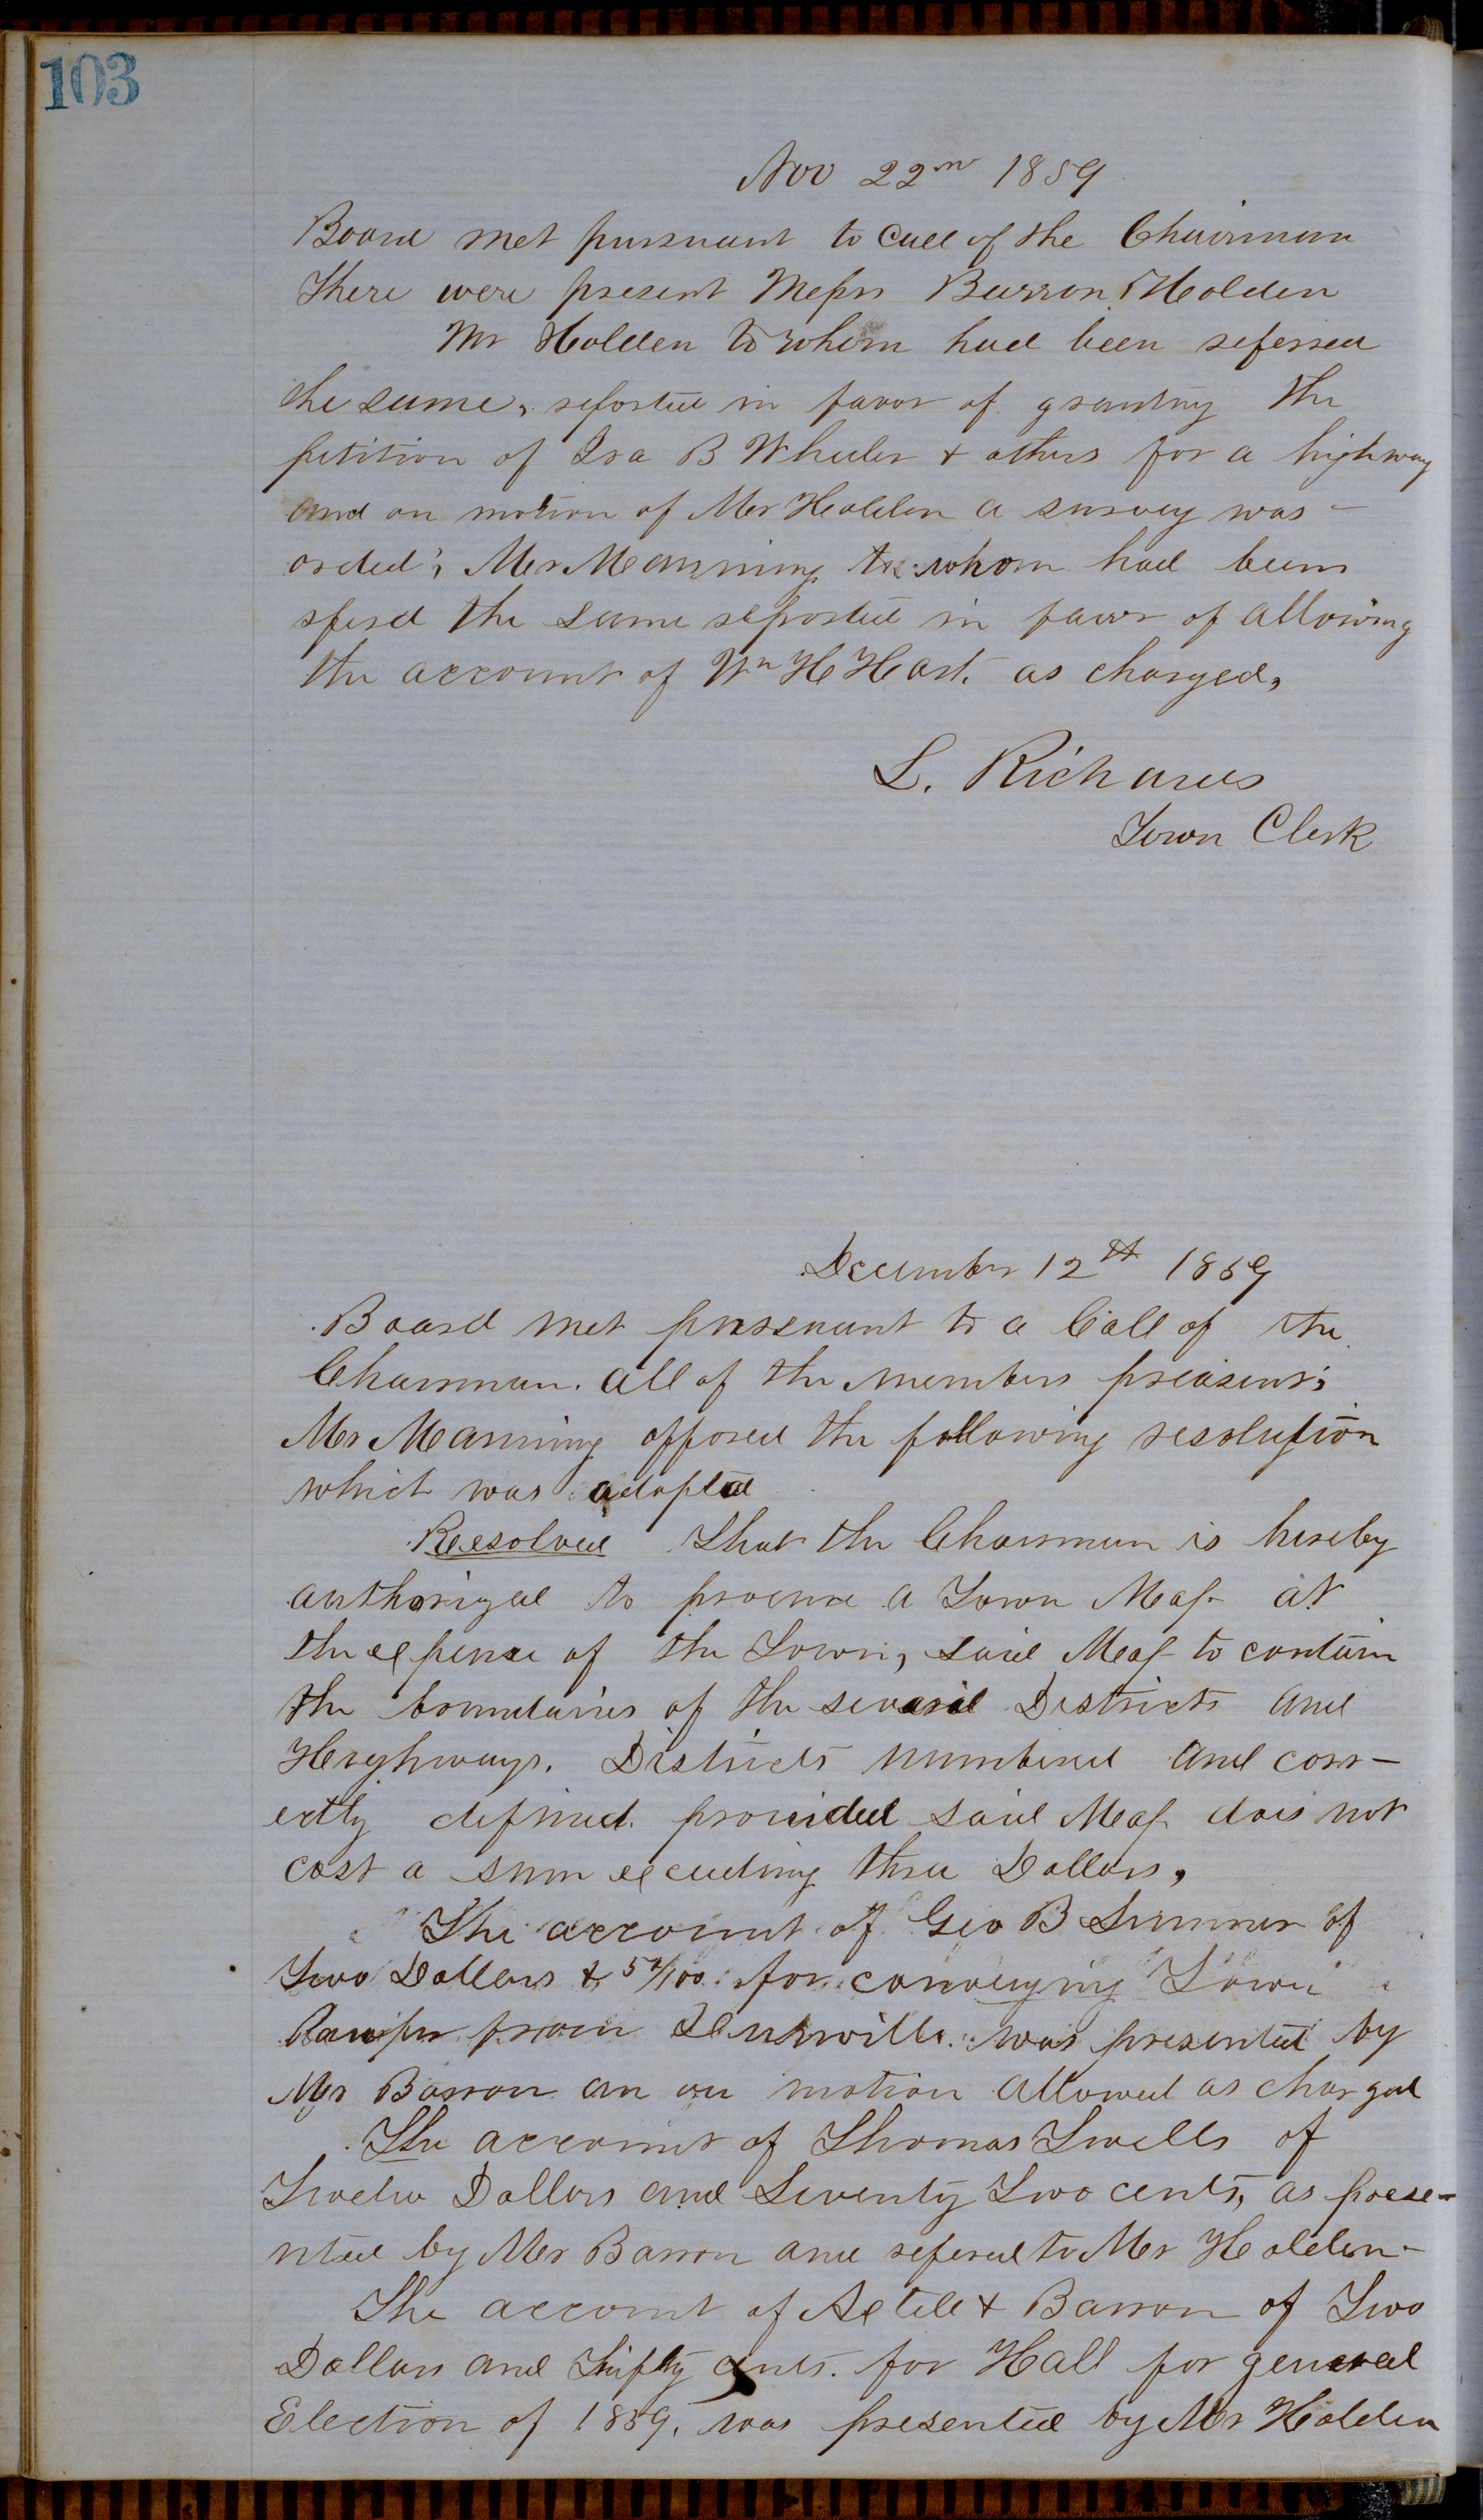 103
Nov 22nd 1859
Board met pursuant to Call of the Chairman
There were present Messrs Barron, Holden
Mr Holden to whom had been referred
the same, reported in favor of granting the
petition of Ira B Wheeler & others for a highway
and on motion of Mr Holden a survey was -
orded; Mr Manning to whom had been
refered the same reported in favor of allowing
the account of Wm H Hart. as charged,
L. Richards
Town Clerk
December 12th 1859
Board met pursuant to a Call of the
Chairman. all of the members preasent;
Mr Manning offored the following resolution
which was adopted
Reesolved That the Chairman is hereby
authorized to procure a Town Map at
the expense of the Town, said Map to contain
the boundaries of the several Districts and
Heighways. Districts numbered and corr-
ectly defined. provided said Map does not
cost a sum exceeding three Dollars,
The account of Geo B Sumner of
Two Dollars & 50/100 for conveying Town
from was presented by
Mr Barron an on motion allowed as charged
The account of Thomas Twells of
Twelve Dollars and Seventy Two cents, as prese-
nted by Mr Barron and refered to Mr Holden -
The account of & Barron of Two
Dollars and Fifty cents. for Hall for general
Election of 1859. was presented by Mr Holden